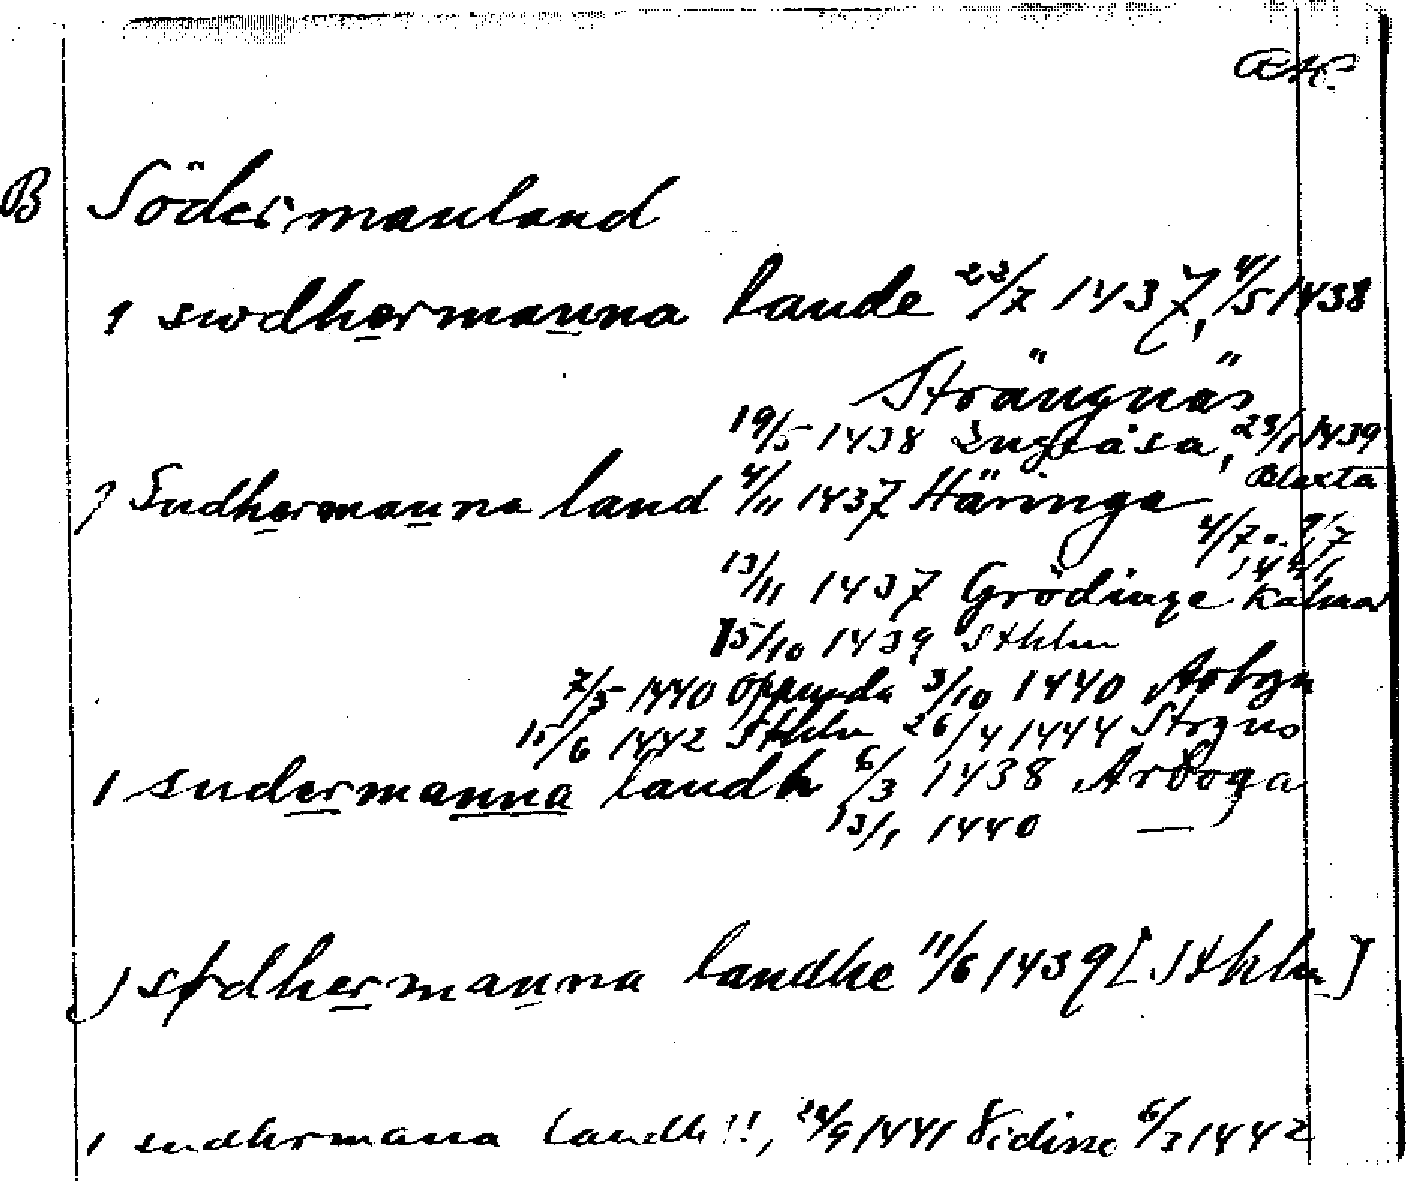 B Södermanland
1 swdhermanna lande 22/7 1437, 4/5 1438
Strängnäs
19/5 1438 23/1 1439
Sudhermanna land 4/11 1437 Häringe Blaxta
4/7 o. 9/7
13/11 1437 Grödinge 1441 Kalmar
15/10 1439 Sthlm
7/5 1440 Oppunda 3/10 1440
15/6 1442 Sthlm 26/4 1444 Strgns
1 sudermanna landh 6/3 1438 Arboga
13/1 1440 —
j sødhermanna landhe 11/6 1439 [Sthlm]
1 sudhermana landh !!, /9 1441 6/3 1442